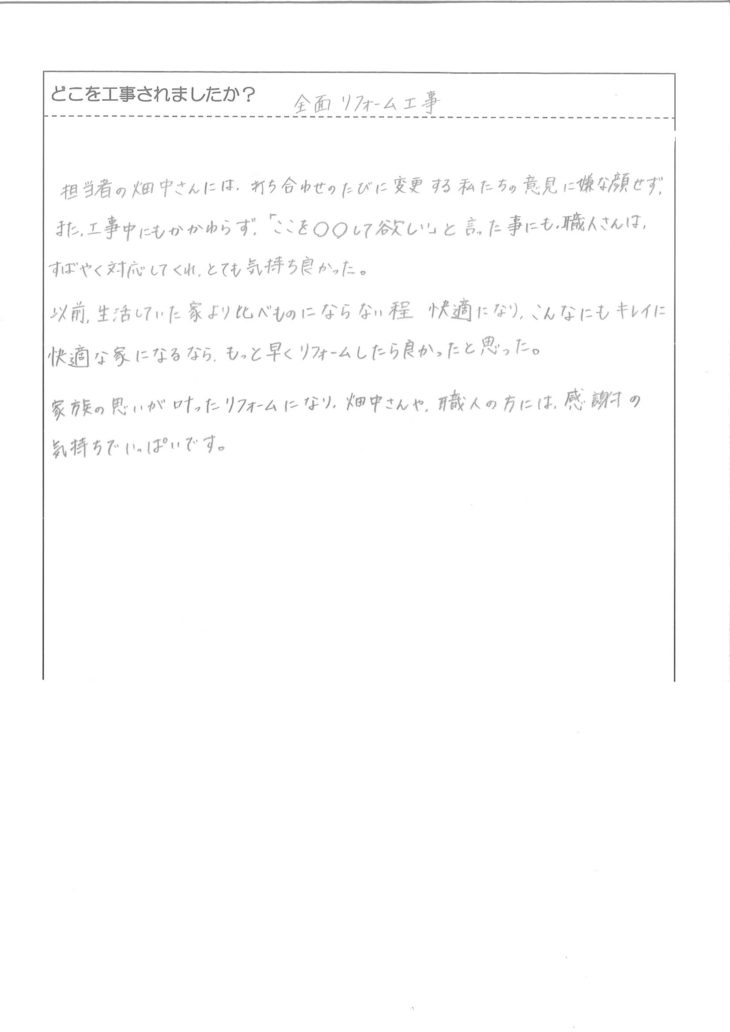 どこを工事されましたか？ 全面リフォーム工事
担当者の畑中さんには、打ち合わせのたびに変更する私たちの意見に嫌な顔せず、
また、工事中にもかかわらず、「ここを〇〇して欲しい」と言った事にも、職人さんは、
すばやく対応してくれ、とても気持ち良かった。
以前、生活していた家より比べものにならない程 快適になり、こんなにもキレイに
快適な家になるなら、もっと早くリフォームしたら良かったと思った。
家族の思いが叶ったリフォームになり、畑中さんや、職人の方には、感謝の
気持ちでいっぱいです。